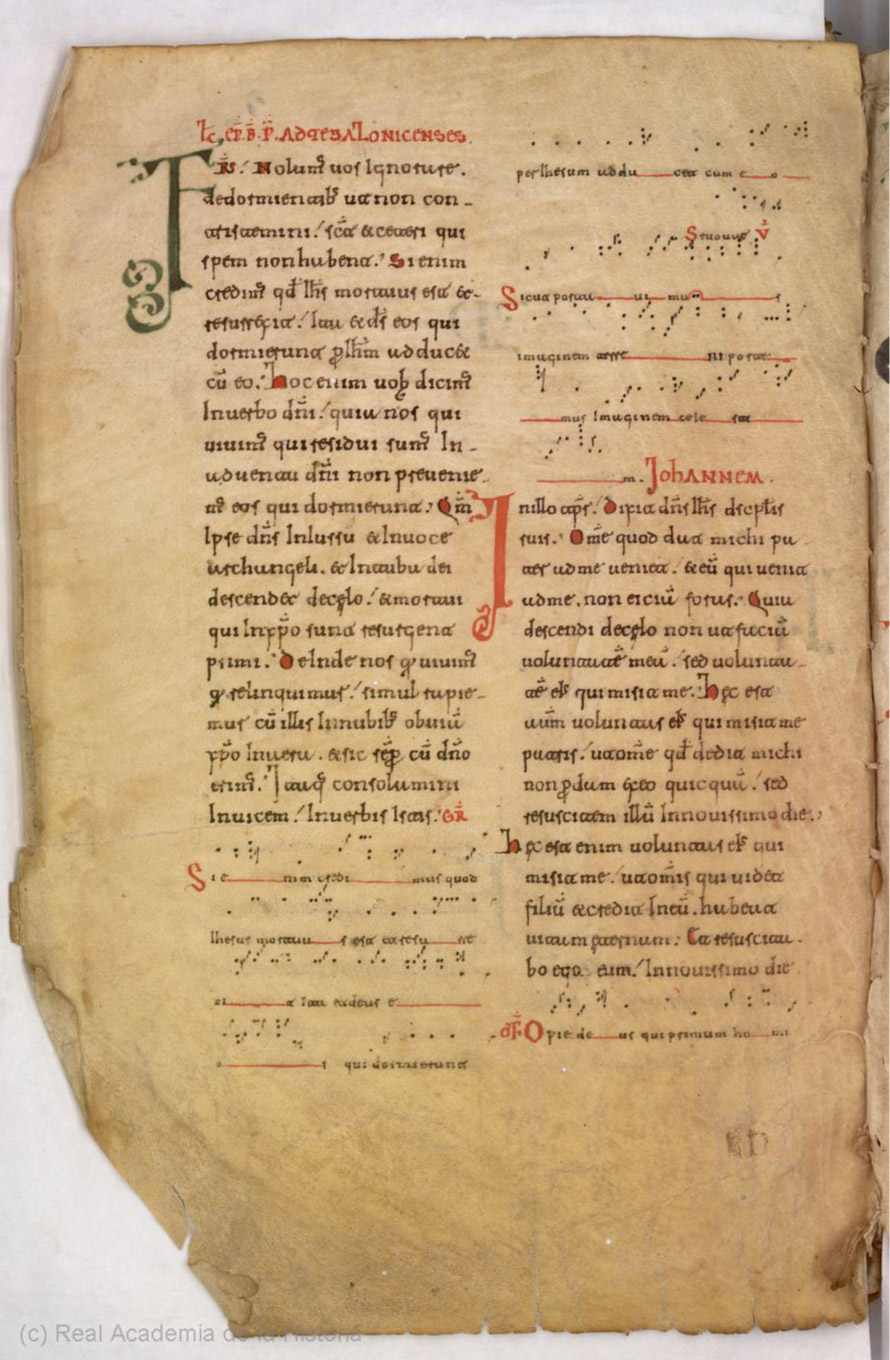 Lc̄. EP̄. B. P̄. AD TESALONICENSES.
FR̄S. Nolum᷒ uos Ignorare.
de dormientib᷒ ut non con-
tristemini. sic̄ & ceteri qui
spem non habent. Si enim
credim᷒ qđ Ih̄s mortuus est &
resurrexit. Ita & d̄s eos qui
dormierunt ꝑ Ih̄m adduc&
cū eo. Hoc enim uob̄ dicim᷒
In uerbo dn̄i. quia nos qui
uiuim᷒ qui residui sum᷒ In
aduentu dn̄i non preuenie
m᷒ eos qui dormierunt. Qm̄
Ipse dn̄s In Iussu & In uoce
archangeli. & In tuba dei
descendet de cęlo. & mortui
qui In xp̄o sunt resurgent
primi. DeInde nos q̨ uiuim᷒
q̨ relinquimur. simul rapie-
mur cū illis In nubib᷒ obuiā
xp̄o In aera. & sic sēp cū dn̄o
erim᷒. Itaq̨ consolamini
Inuicem. In uerbis Istis. GR̄
Si e nim credi mus quod
Ihesus mortuu s est et resu rre
xi t Ita et deus e
o s qui dormierunt
per Ihesum addu cet cum e o
Seuouae V̄
Sicut portaui mu s
imaginem terre ni porte
mus Imaginem cele sti
m. JOHANNEM.
In illo tp̄r. Dixit dn̄s Ih̄s discplis
suis. Om̄e quod dat michi pa
ter ad me ueniet. & eū qui uenit
ad me. non eiciā foras. Quia
descendi de cęlo non ut faciā
uoluntatē meā. sed uolunta-
tē ei᷒ qui misit me. Hęc est
autē uoluntas ei᷒ qui misit me
patris. ut om̄e qđ dedit michi
non ꝑdam ex eo quicquā. sed
resuscitem illū In nouissimo die.
Hęc est enim uoluntas ei᷒ qui
misit me. ut om̄is qui uidet
filiū & credit In eū. habeat
uitam eternam. Et resuscita-
bo ego eum. In nouissimo die
OF̄ O pie de us qui primum ho mi
(c) Real Academia de la Historia